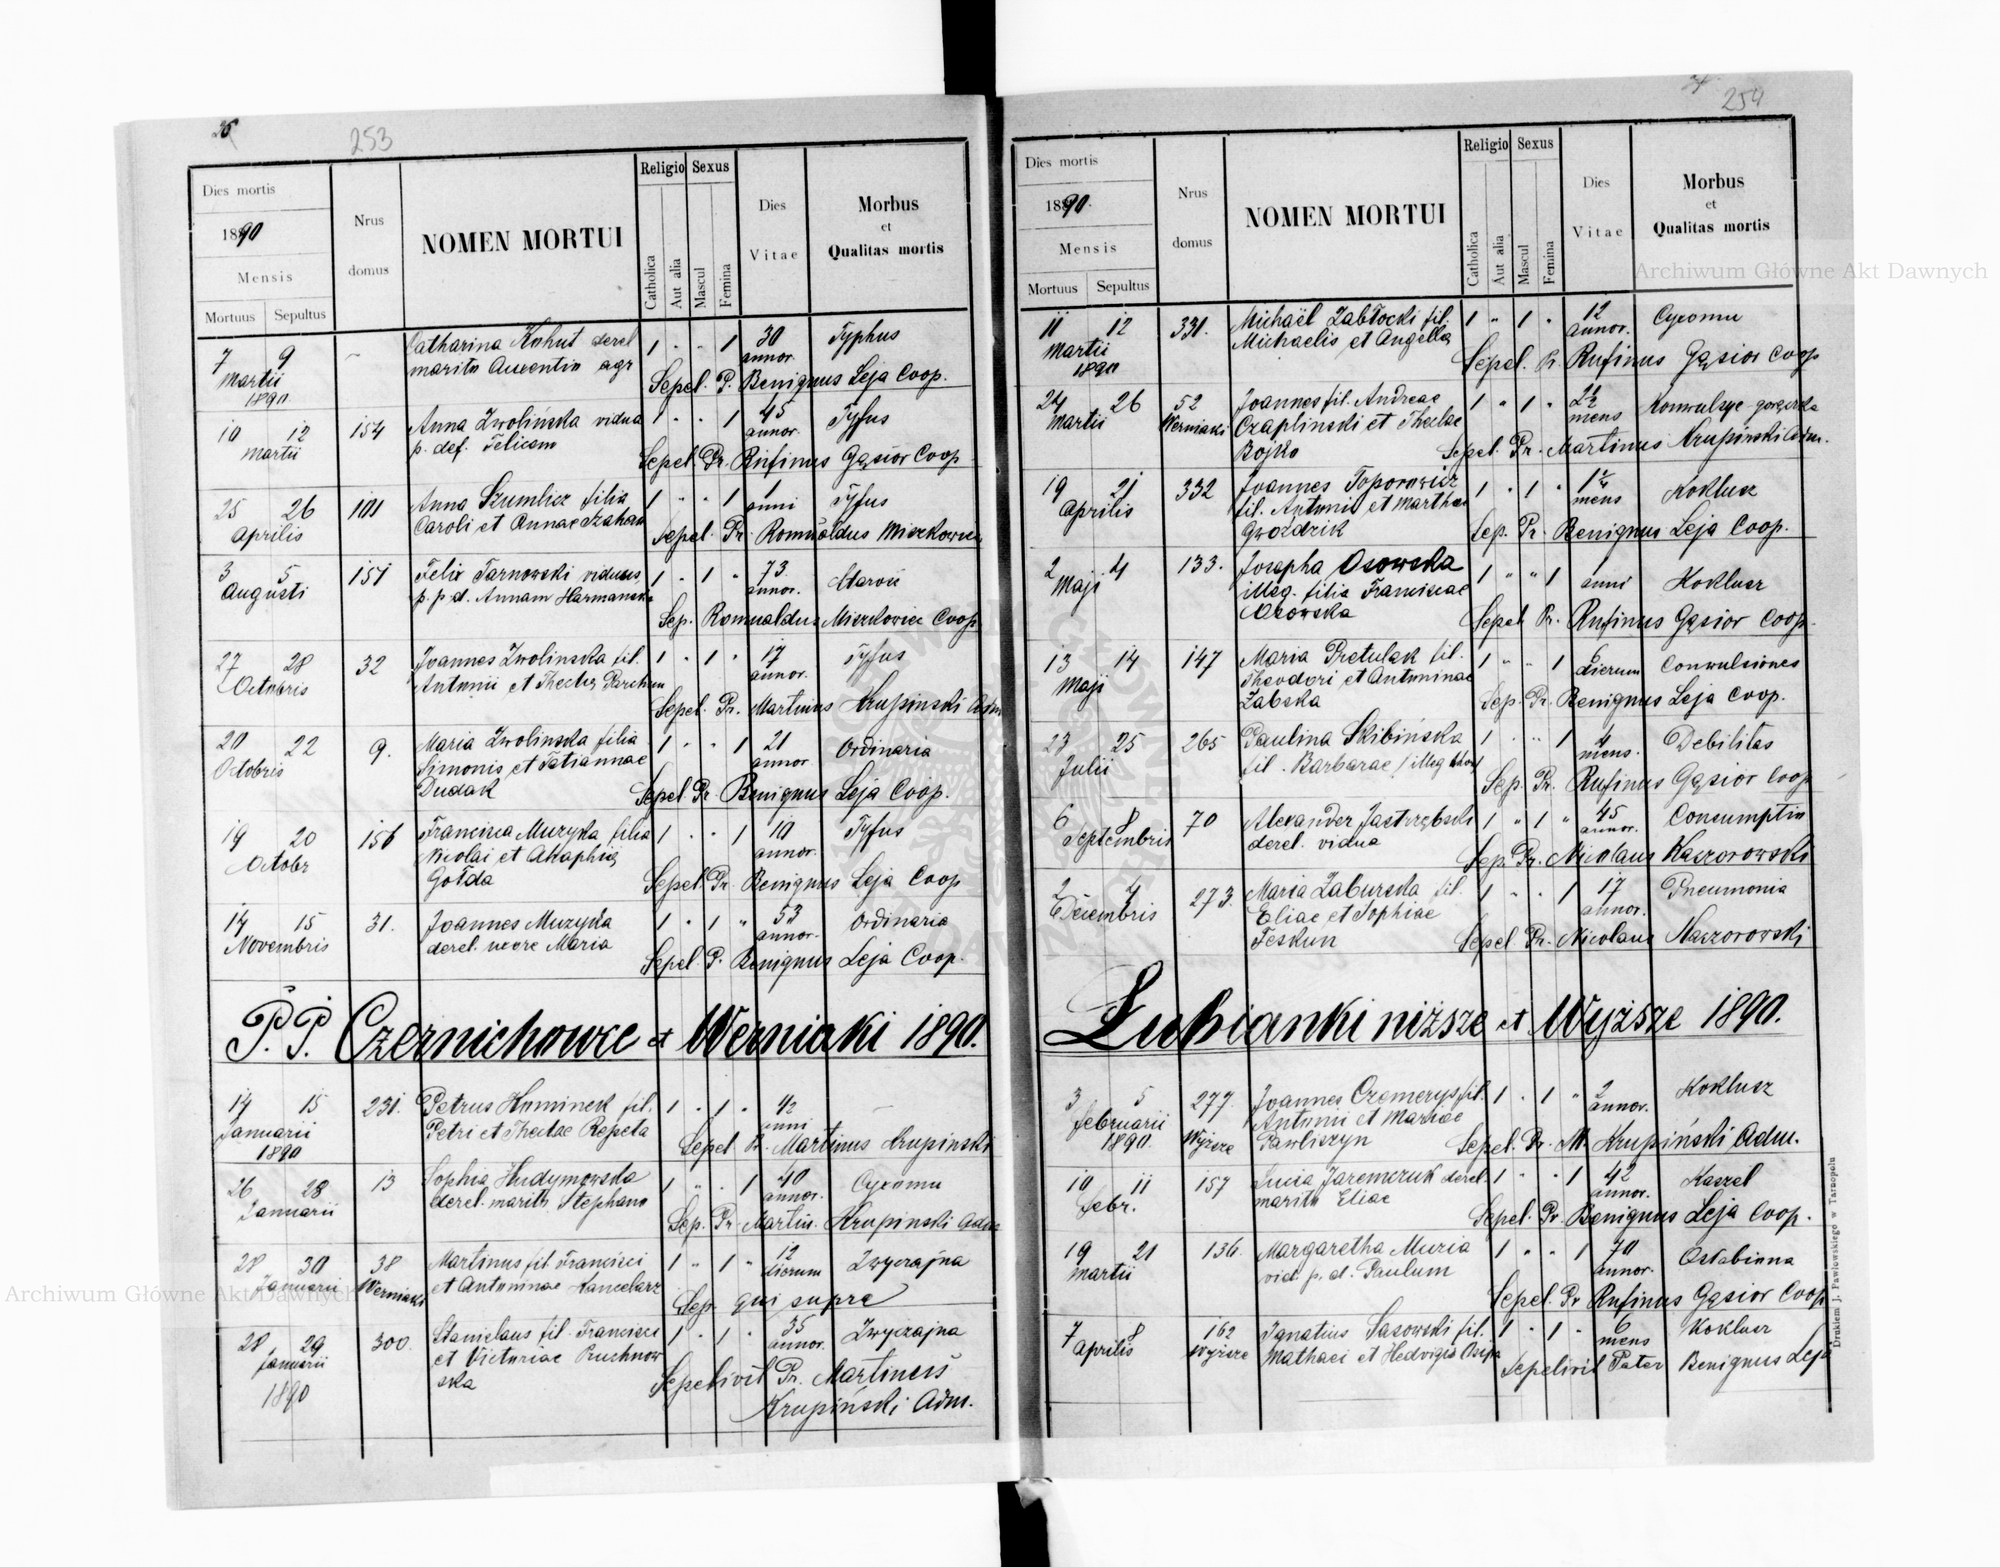 253
Dies mortis
1890
Mensis
Mortuus Sepultus
Nrus domus
NOMEN MORTUI
Religio Sexus
Catholica Aut alia Mascul Femina
Dies Vitae
Morbus et Qualitas mortis
7 9 Catharina Kohut derel 1 " " 1 30 Typhus
Martii marito Auxentio agr annor.
1890 Sepel. P. Benignus Leja Coop.
10 12 154 Anna Zwolińska vidua 1 " " 1 45 Tyfus
Martii p. def. Felicem annor.
Sepel. Pr. Rufinus Gąsior Coop
25 26 101 Anna Szumlicz filia 1 " " 1 1 Tyfus
Aprilis Caroli et Annae anni
Sepel. Pr. Romualdus Mieczkowicz
3 5 151 Felix Tarnowski viduus 1 " 1 " 73 Starość
Augusti p. p. d. Annam Harmanska annor.
Sep. Romualdus Mieczkowicz Coop
27 28 32 Joannes Zwolinska fil. 1 " 1 " 17 Tyfus
Octobris Antonii et Theclae annor.
Sepel. Pr. Martinus Krupinski Adm
20 22 9. Maria Zwolinska filia 1 " " 1 21 Ordinaria
Octobris Simonis et Tatiannae annor
Dudak Sepel Pr. Benignus Leja Coop.
19 20 156 Francisca Muzyka filia 1 " " 1 10 Tyfus
Octobr Nicolai et Ahaphią annor.
Gołda Sepel Pr. Benignus Leja Coop
14 15 31. Joannes Muzyka 1 " 1 " 53 Ordinaria
Novembris derel. uxore Maria annor.
Sepel. P. Benignus Leja Coop.
P. P. Czernichowce et Werniaki 1890.
14 15 231. Petrus Huminek fil. 1 " 1 " 1/2
Januarii Petri et Theclae Repeta anni
1890 Sepel Pr. Martinus Krupinski
26 28 13 Sophia Hudymowska 1 " " 1 40 Cyxomu
Januarii derel. marito Stephano annor.
Sep. Pr. Martin. Krupinski Adm
28 30 38 Martinus fil Francisci 1 " 1 " 12 Zwyczajna
Januarii Werniaki et Antoninae Kancelarz dierum
Sep. qui supra
28 29 300. Stanislaus fil. Francisci 1 " 1 " 35 Zwyczajna
Januarii et Victoriae Pruchnow annor.
1890 ska Sepelivit Pr. Martinus
Krupiński Adm.
254
Dies mortis
1890.
Mensis
Mortuus Sepultus
Nrus domus
NOMEN MORTUI
Religio Sexus
Catholica Aut alia Mascul Femina
Dies Vitae
Morbus et Qualitas mortis
11 12 331. Michaël Zabłocki fil. 1 " 1 " 12 Cyxomu
Martii Michaelis et Angella annor.
1890 Sepel. Pr. Rufinus Gąsior Coop
24 26 52 Joannes fil. Andreae 1 " 1 " 2 1/2 Konwulsye gorączka
Martii Werniaki Czaplinski et Theclae mens
Bojko Sepel. Pr. Martinus Krupinski Adm.
19 21 332 Joannes Toporowicz 1 " 1 " mens Koklusz
Aprilis fil. Antonii et Marthae
Gwozdzik Sep. Pr. Benignus Leja Coop.
2 4 133. Josepha Osowska 1 " " 1 1 anni Koklusz
Maji illeg. filia Franciscae
Osowska Sepel Pr. Rufinus Gąsior Coop.
13 14 147 Maria Pretulak fil. 1 " " 1 6 Convulsiones
Maji Theodori et Antoninae dierum
Zabska Sep. Pr. Benignus Leja Coop.
23 25 265 Paulina Skibińska 1 " " 1 4 Debilitas
Julii fil. Barbarae /illeg thori mens.
Sep. Pr. Rufinus Gąsior Coop
6 8 70 Alexander Jastrzębski 1 " 1 " 45 Consumptio
Septembris derel. vidua annor.
Sep. Pr. Nicolaus Kaszorowski
2 4 273. Maria Zaburska fil. 1 " " 1 17 Pneumonia
Decembris Eliae et Sophiae annor.
Feskun Sepel. Pr. Nicolaus Kaszorowski
Łubianki niższe et Wyższe 1890.
3 5 277. Joannes Czemerys fil. 1 " 1 " 2 Koklusz
Februarii Wyższe Antonii et Mariae annor.
1890. Pawliszyn Sepel. Pr. M. Krupiński Adm.
10 11 157 Lucia Jaremczuk derel. 1 " " 1 42 Kaszel
Febr. marito Eliae annor.
Sepel. Pr Benignus Leja Coop.
19 21 136. Margaretha Muzia 1 " " 1 70 Ostabiona
Martii vid. p. d. Paulum annor.
Sepel. Pr Rufinus Gąsior Coop
7 8 162 Ignatius Sasowski fil. 1 " 1 " 6 Koklusz
Aprilis Wyższe Mathaei et Hedvigis Osipa mens
Sepelivit Pater Benignus Leja
Drukiem J. Pawłowskiego w Tarnopolu
Archiwum Główne Akt Dawnych
Archiwum Główne Akt Dawnych